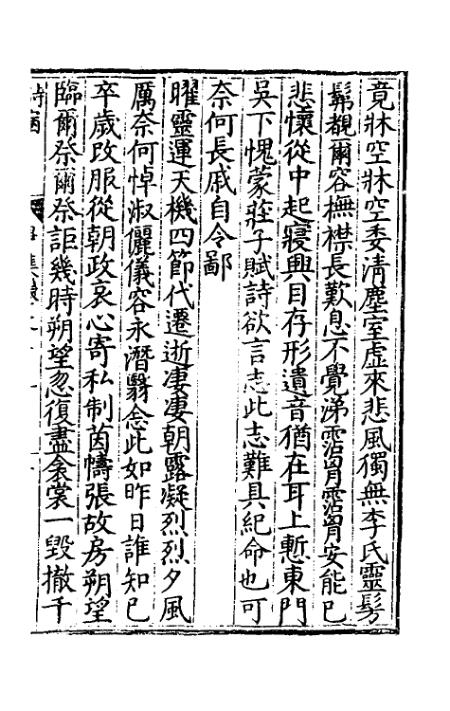 竟牀空牀空委清塵室虛來悲風獨無李氏靈髣
髴覩爾容撫襟長歎息不覺涕霑胷霑胷安能已
悲懷從中起寢興目存形遺音猶在耳上慙東門
吳下愧蒙莊子賦詩欲言志此志難具紀命也可
奈何長戚自令鄙
曜靈運天機四節代遷逝凄凄朝露凝烈烈夕風
厲奈何悼淑儷儀容永潛翳念此如昨日誰知已
卒歲改服從朝政哀心寄私制茵幬張故房朔望
臨爾祭爾祭詎幾時朔望忽復盡衾裳一毀撤千